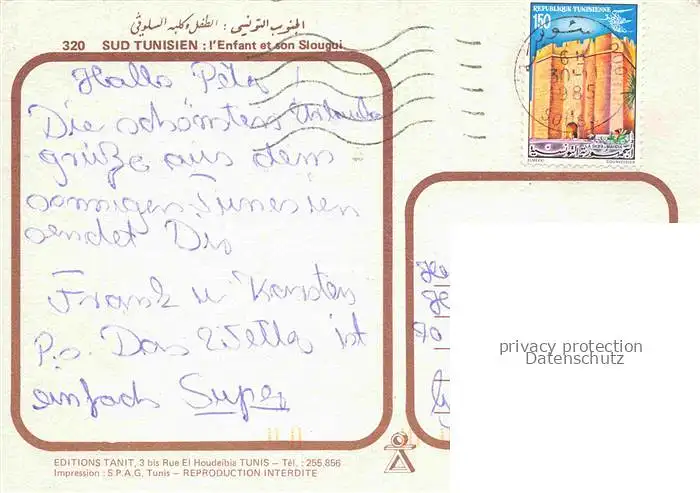 الجنوب التونسي : الطفل وكلبه السلوقي
320 SUD TUNISIEN : l'Enfant et son Slougui
REPUBLIQUE TUNISIENNE
150
30
1985
الجمهورية التونسية
Hallo Peter !
Die schönsten Urlaubs
grüße aus dem
sonnigen Tunesien
sendet Dir
Frank u Karsten
P.s. Das Wetter ist
einfach Super
He
H
70
privacy protection
Datenschutz
EDITIONS TANIT, 3 bis Rue El Houdeibia TUNIS – Tél. : 255.856
Impression : S.P.A.G. Tunis – REPRODUCTION INTERDITE